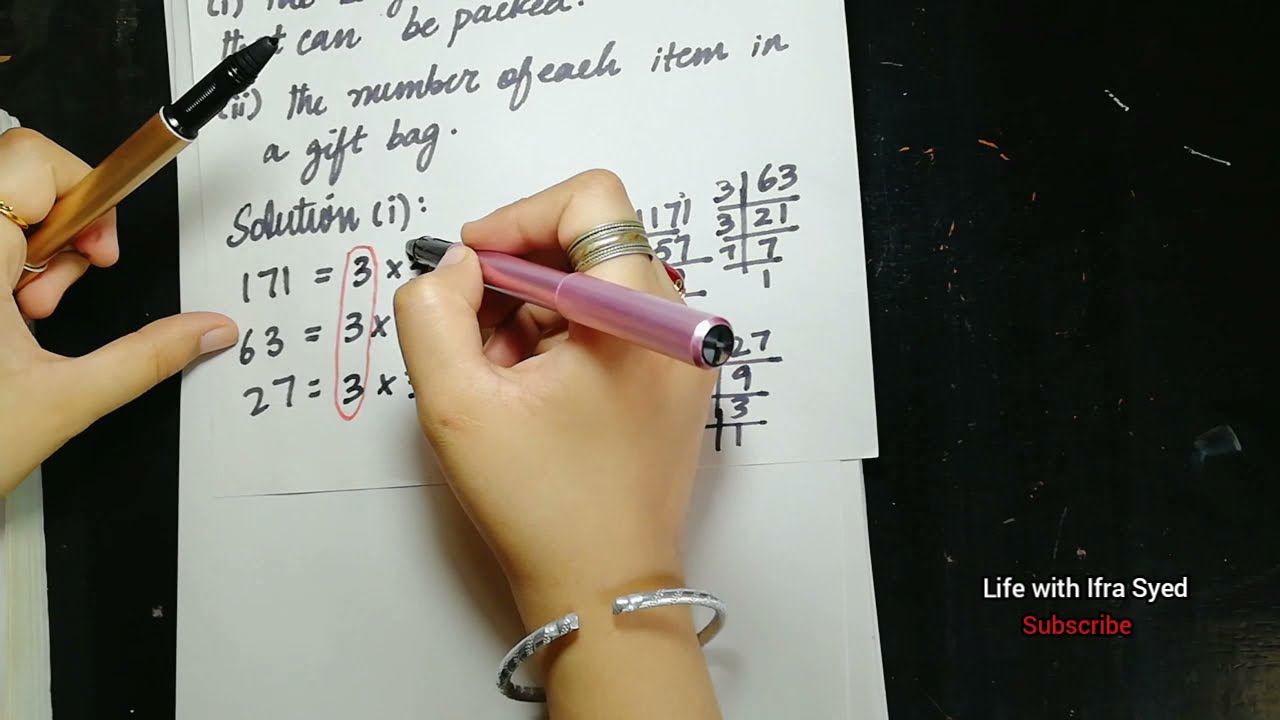 (i) the
that can be packed.
(ii) the number of each item in
a gift bag.
Solution (i):
171 = 3 ×
63 = 3 ×
27 = 3 ×
171
57
3 63
3 21
7 7
1
27
9
3
1
Life with Ifra Syed
Subscribe